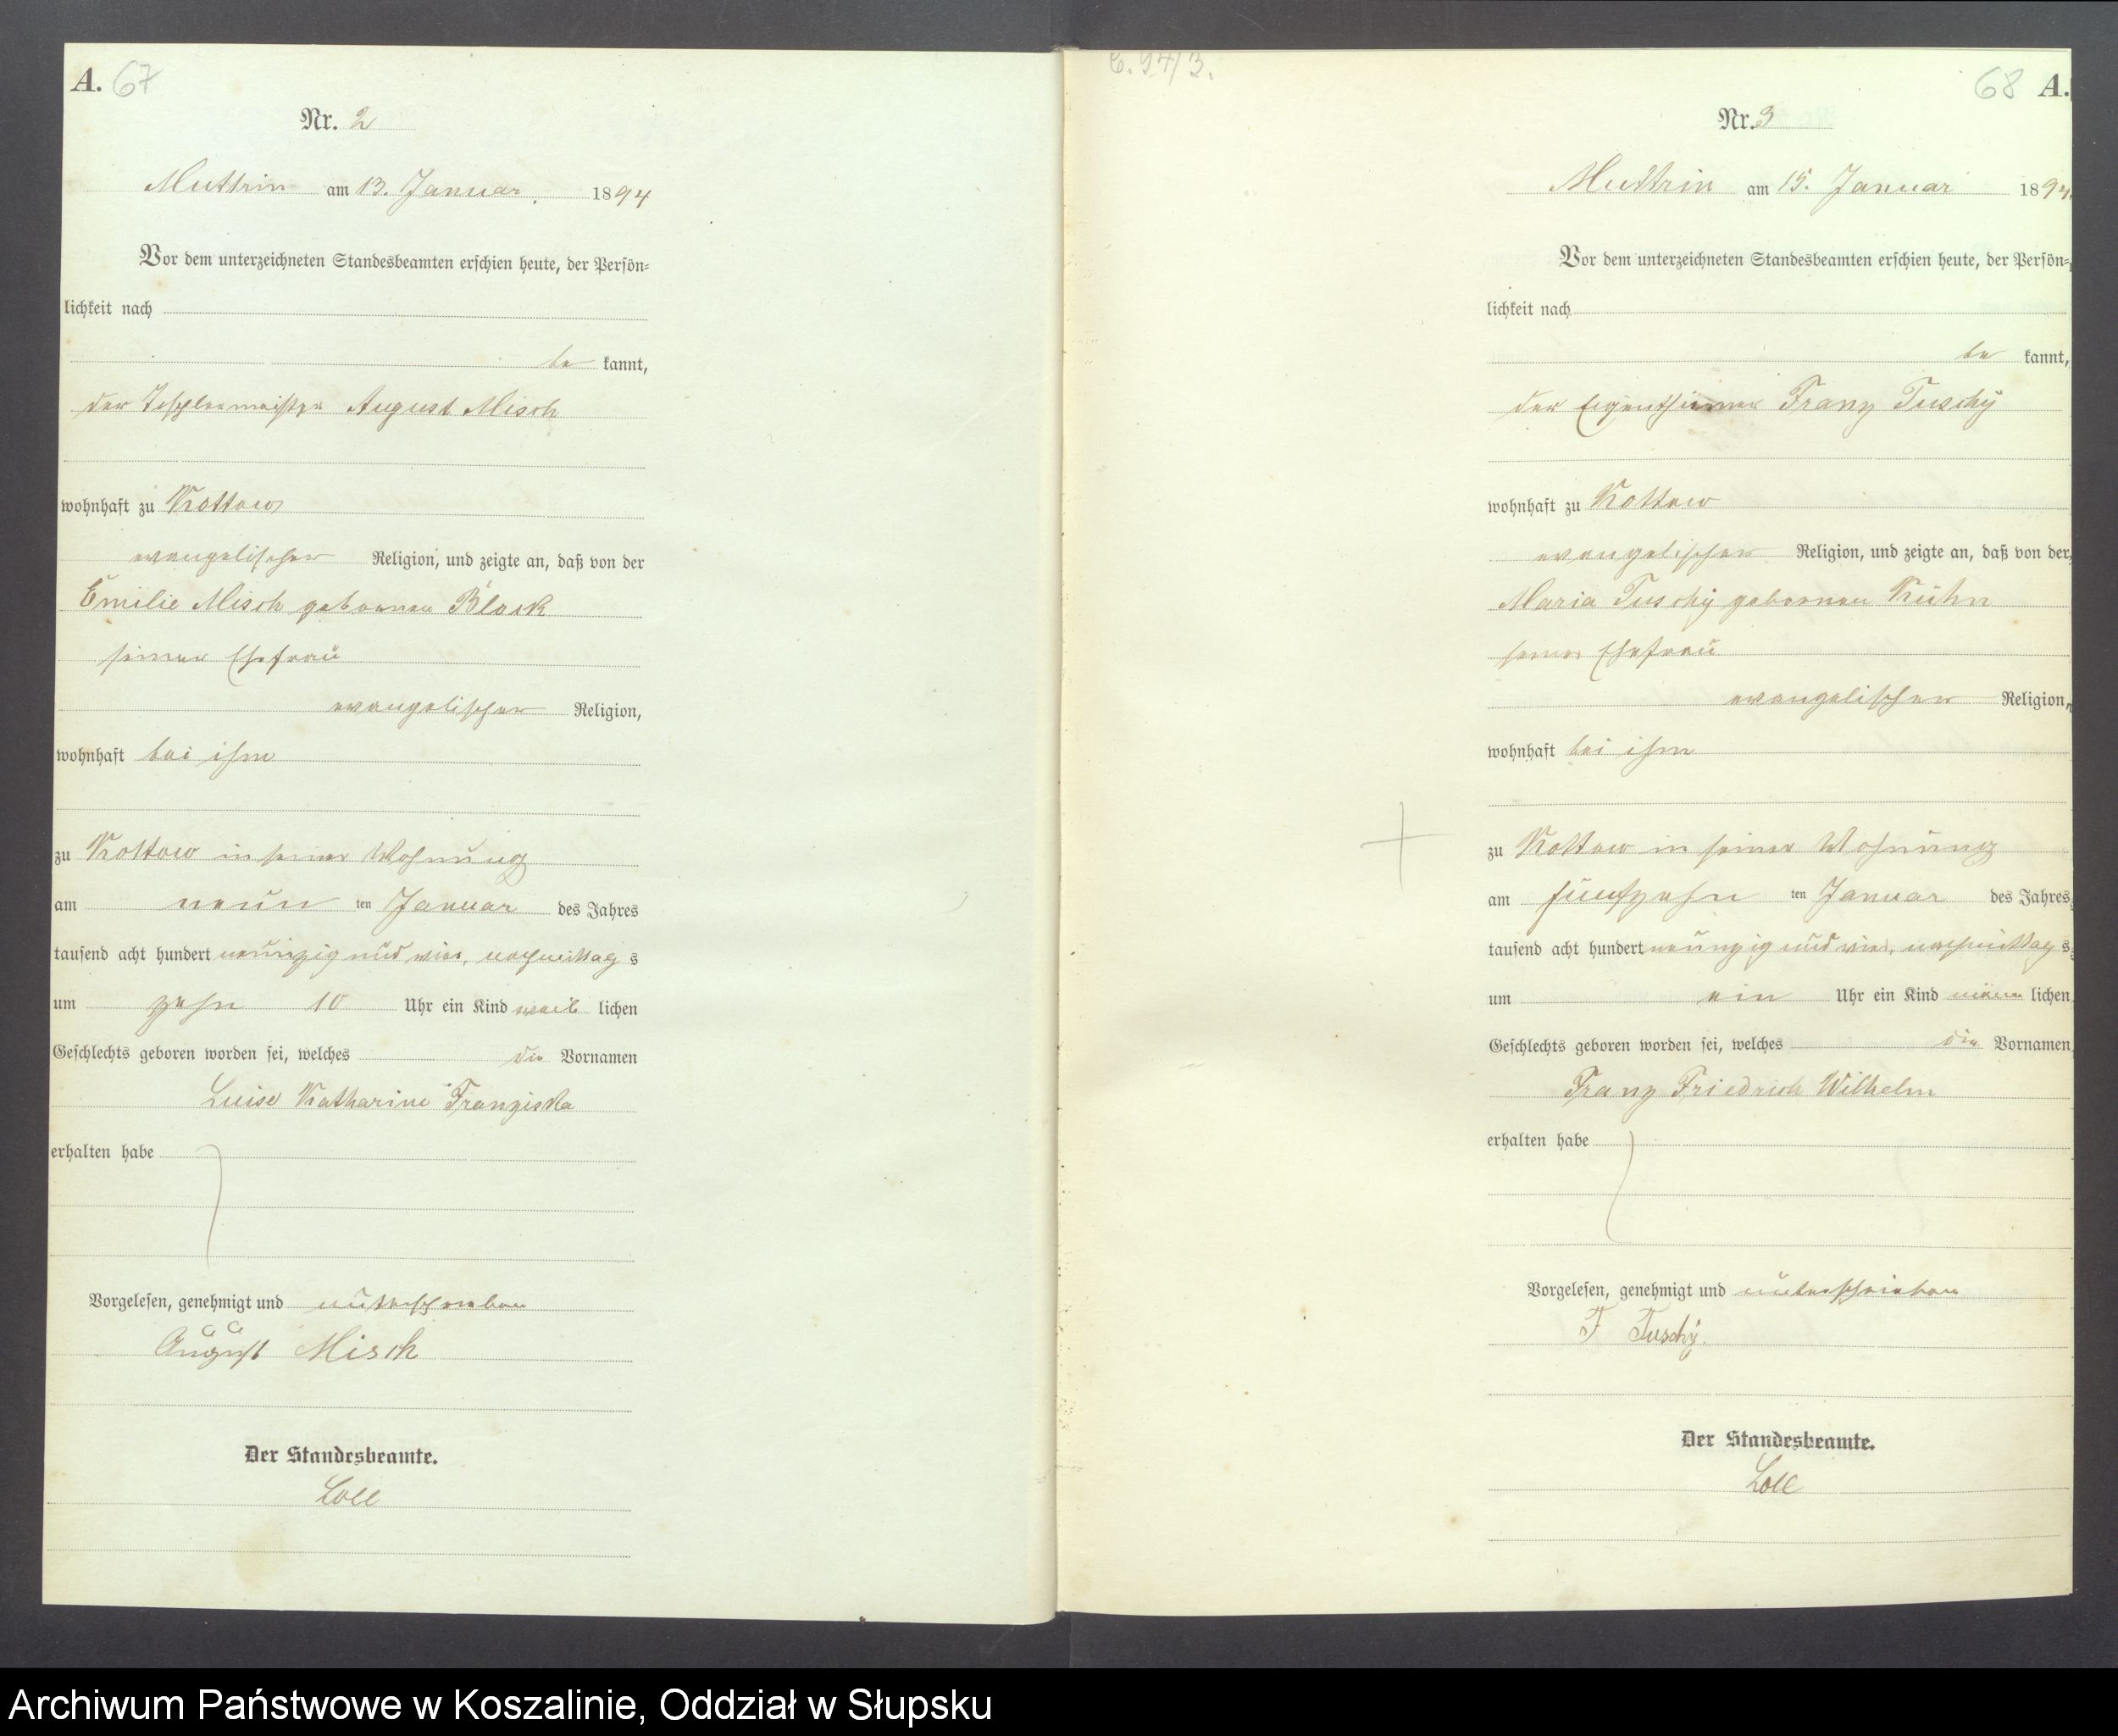 A. 67
Nr. 2
Muttrin am 13. Januar 1894
Vor dem unterzeichneten Standesbeamten erschien heute, der Persön=
lichkeit nach
be kannt,
der August Misch
wohnhaft zu Kottow
evangelischer Religion, und zeigte an, daß von der
Emilie Misch geborenen Block
seiner Ehefrau
evangelischer Religion,
wohnhaft bei ihm
zu Kottow in seiner Wohnung
am neun ten Januar des Jahres
tausend acht hundert neunzig und vier, nachmittag s
um zehn 10 Uhr ein Kind weib lichen
Geschlechts geboren worden sei, welches die Vornamen
Luise Katharine Franziska
erhalten habe
Vorgelesen, genehmigt und unterschrieben
August Misch
Der Standesbeamte.
Loll
C. 97/3.
68 A.
Nr. 3
Muttrin am 15. Januar 1894
Vor dem unterzeichneten Standesbeamten erschien heute, der Persön=
lichkeit nach
be kannt,
der Eigenthümer Franz Tuschÿ
wohnhaft zu Kottow
evangelischer Religion, und zeigte an, daß von der
Maria Tuschÿ geborenen Kühn
seiner Ehefrau
evangelischer Religion,
wohnhaft bei ihm
zu Kottow in seiner Wohnung
am fünfzehn ten Januar des Jahres
tausend acht hundert neunzig und vier, nachmittag s
um ein Uhr ein Kind männ lichen
Geschlechts geboren worden sei, welches die Vornamen
Franz Friedrich Wilhelm
erhalten habe
Vorgelesen, genehmigt und unterschrieben
F Tuschÿ.
Der Standesbeamte.
Loll
Archiwum Państwowe w Koszalinie, Oddział w Słupsku